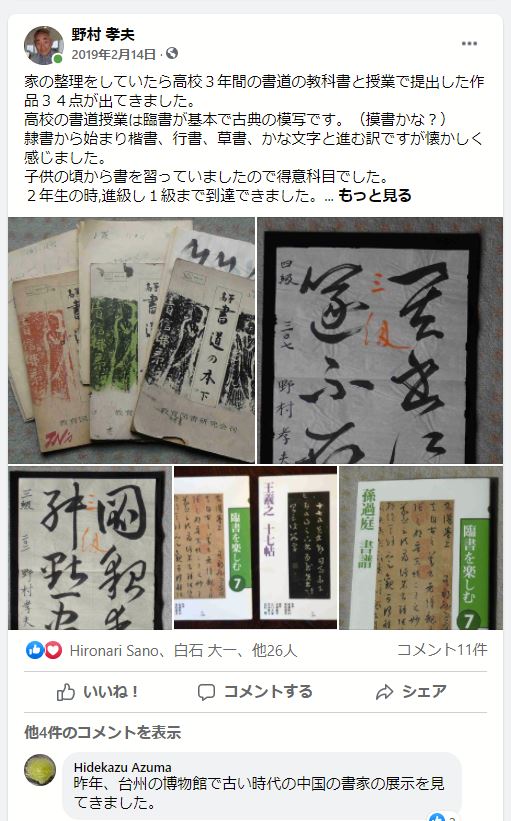 野村 孝夫
2019年2月14日
家の整理をしていたら高校３年間の書道の教科書と授業で提出した作
品３４点が出てきました。
高校の書道授業は臨書が基本で古典の模写です。（摸書かな？）
隷書から始まり楷書、行書、草書、かな文字と進む訳ですが懐かしく
感じました。
子供の頃から書を習っていましたので得意科目でした。
２年生の時,進級し１級まで到達できました。... もっと見る
書道の本 下
教育図書研究会刊
四級 三〇七 野村孝夫
三級
遂不
三級
野村孝夫
三級
臨書を楽しむ
7
王羲之 十七帖
孫過庭 書譜
臨書を楽しむ
7
Hironari Sano、白石 大一、他26人
コメント11件
いいね！
コメントする
シェア
他4件のコメントを表示
Hidekazu Azuma
昨年、台州の博物館で古い時代の中国の書家の展示を見
てきました。